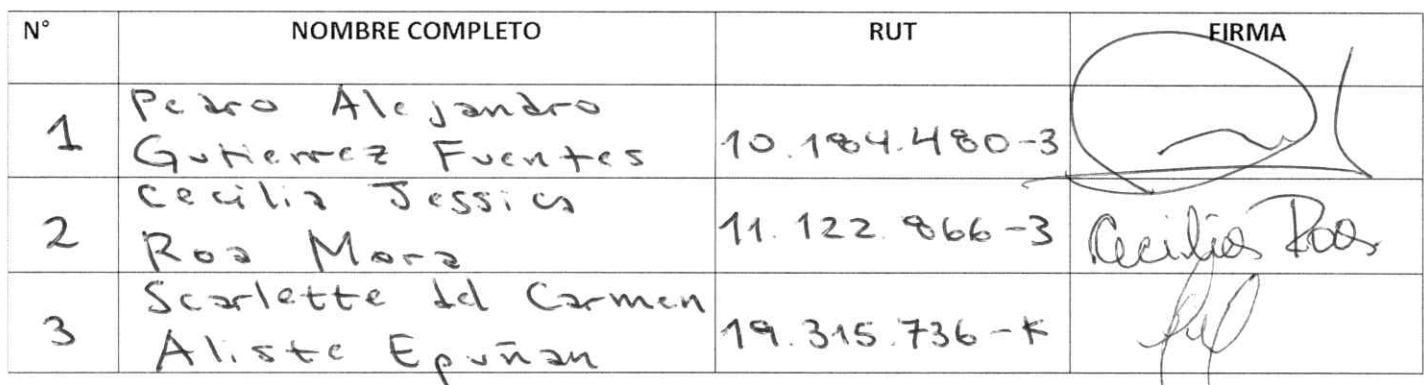 N° NOMBRE COMPLETO RUT FIRMA
Pedro Alejandro
1 Gutierrez Fuentes 10.184.480-3
Cecilia Jessica
2 Roa Mora 11.122.866-3 Cecilia Roa
Scarlette del Carmen
3 Aliste Epuñan 19.315.736-K